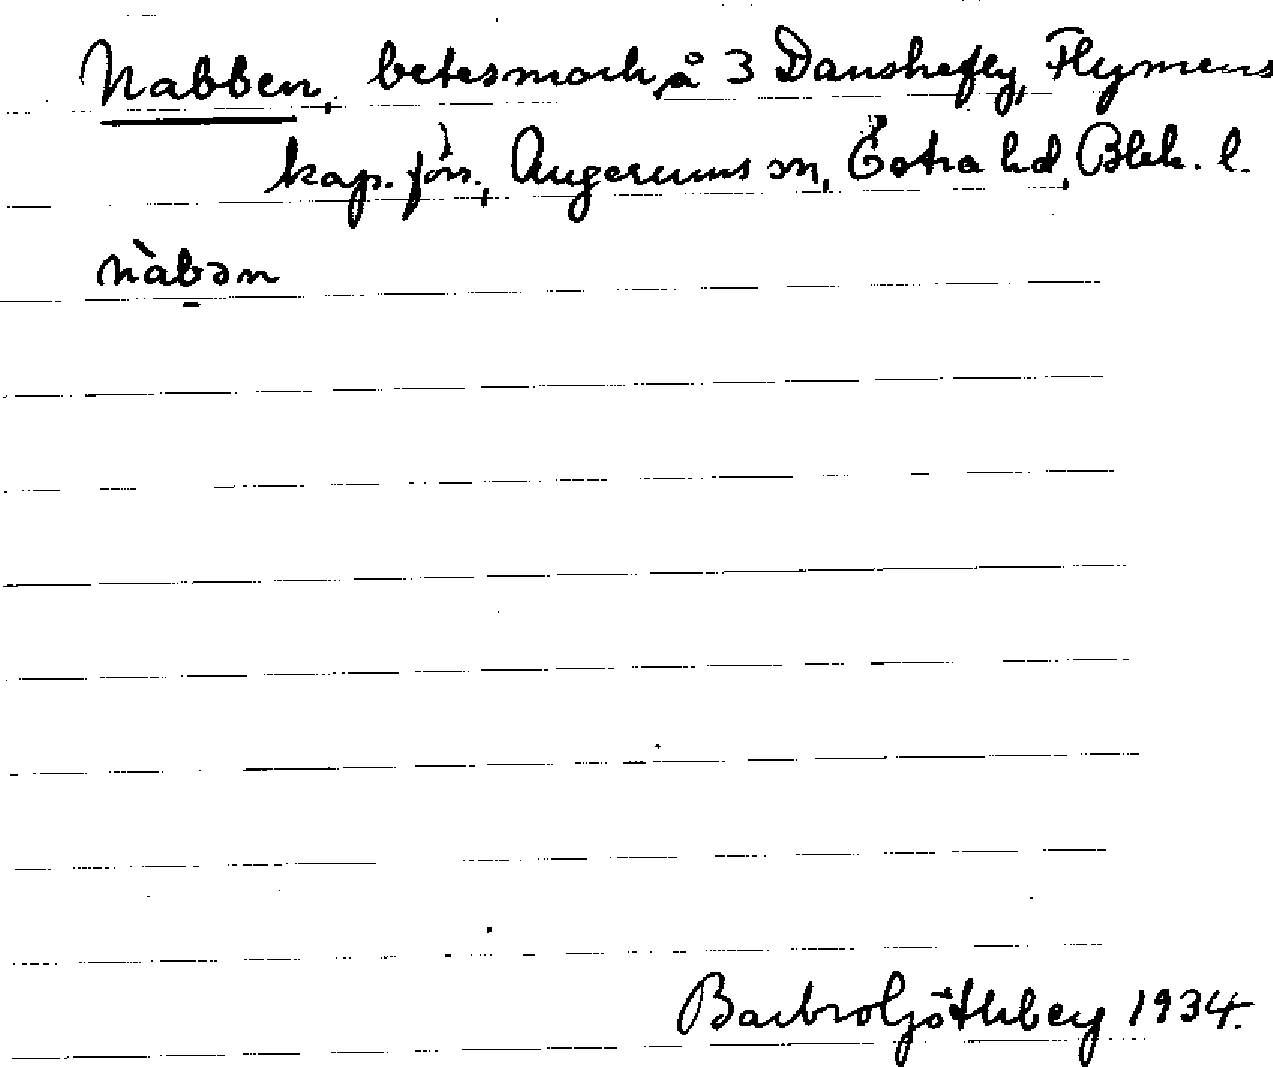 Nabben, betesmark å 3 Danskefly, Flymens
kap. förs., Augerums sn, Östra hd, Blek. l.
nàbən
Barbro Göthberg 1934.